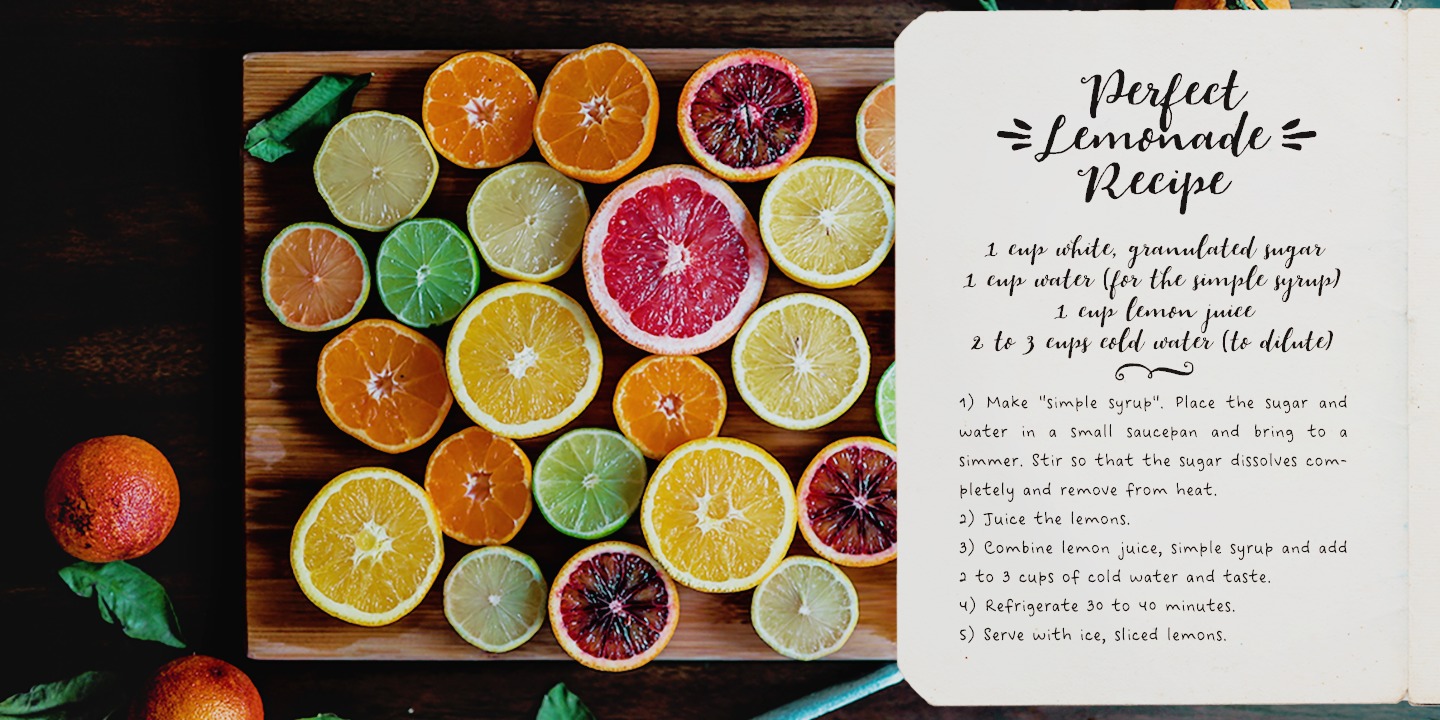 Perfect
Lemonade
Recipe
1 cup white, granulated sugar
1 cup water (for the simple syrup)
1 cup lemon juice
2 to 3 cups cold water (to dilute)
1) Make "simple syrup". Place the sugar and
water in a small saucepan and bring to a
simmer. Stir so that the sugar dissolves com-
pletely and remove from heat.
2) Juice the lemons.
3) Combine lemon juice, simple syrup and add
2 to 3 cups of cold water and taste.
4) Refrigerate 30 to 40 minutes.
5) Serve with ice, sliced lemons.